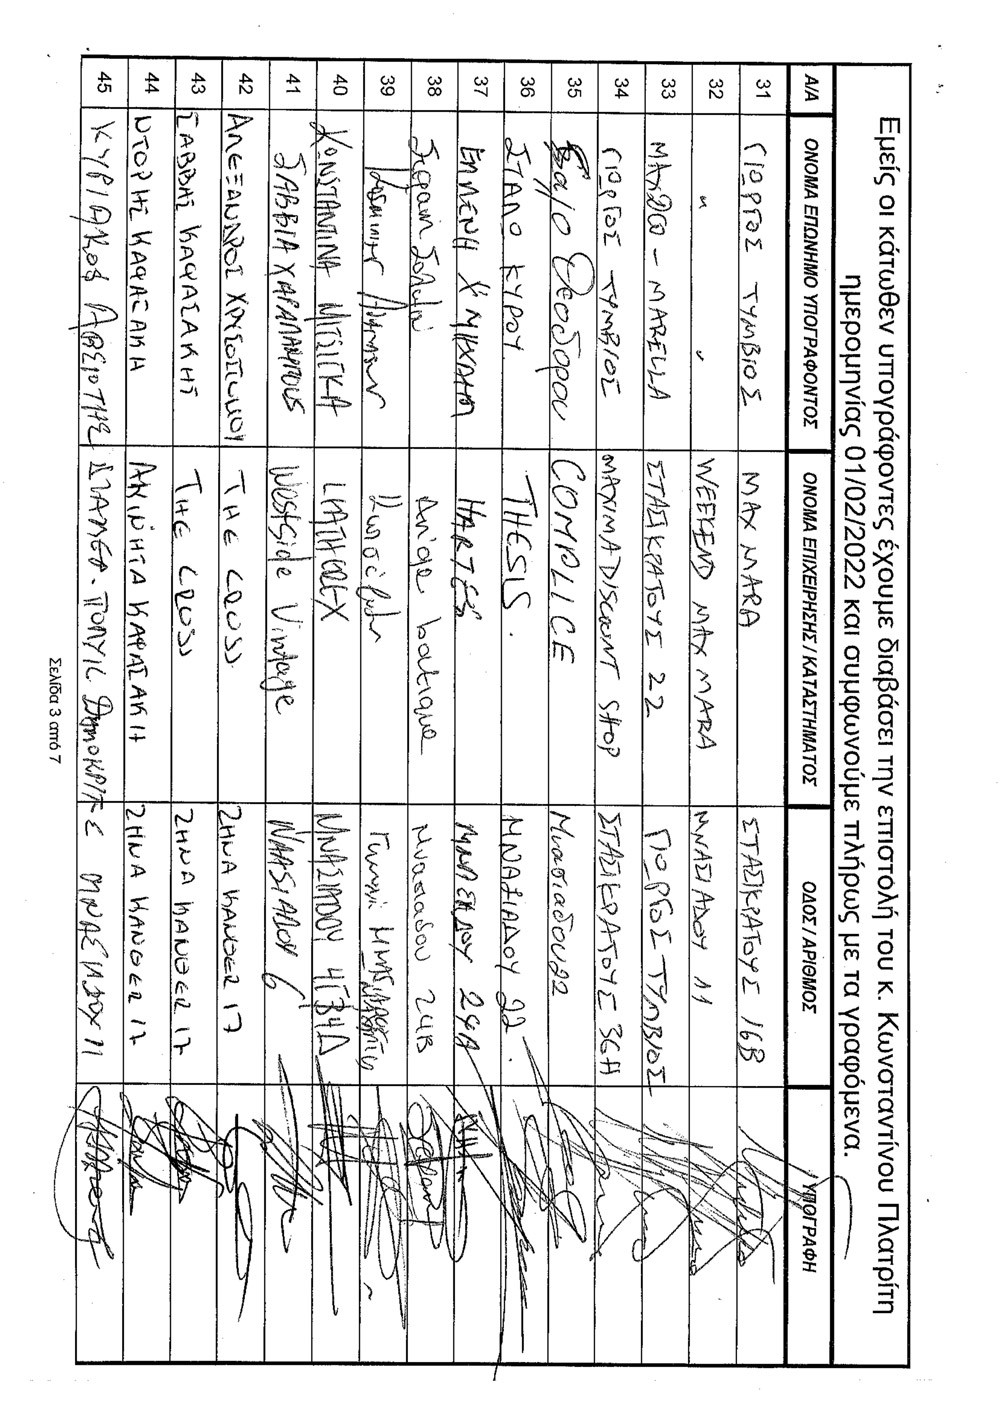 Εμείς οι κάτωθεν υπογράφοντες έχουμε διαβάσει την επιστολή του κ. Κωνσταντίνου Πλατρίτη
ημερομηνίας 01/02/2022 και συμφωνούμε πλήρως με τα γραφόμενα.
Α/Α ΟΝΟΜΑ ΕΠΩΝΗΜΟ ΥΠΟΓΡΑΦΟΝΤΟΣ ΟΝΟΜΑ ΕΠΙΧΕΙΡΗΣΗΣ / ΚΑΤΑΣΤΗΜΑΤΟΣ ΟΔΟΣ / ΑΡΙΘΜΟΣ ΥΠΟΓΡΑΦΗ
31 ΓΙΩΡΓΟΣ ΤΥΜΒΙΟΣ MAX MARA ΣΤΑΣΙΚΡΑΤΟΥΣ 16Β
32 " " WEEKEND MAX MARA ΜΝΑΣΙΑΔΟΥ 11
33 MAX&CO - MARELLA ΣΤΑΣΙΚΡΑΤΟΥΣ 22 ΓΙΩΡΓΟΣ ΤΥΜΒΙΟΣ
34 ΓΙΩΡΓΟΣ ΤΥΜΒΙΟΣ MAXIMA DISCOUNT SHOP ΣΤΑΣΙΚΡΑΤΟΥΣ 36Η
35 Θεοδορου COMPLICE Μνασιαδου 22
36 ΣΤΑΛΩ ΚΥΡΟΥ THESIS. ΜΝΑΣΙΑΔΟΥ 22.
37 Χ"ΜΙΧΑΗΛ ΜΝΑΣΙΑΔΟΥ 24Α
38 boutique Μνασιαδου 24Β
39
40 ΚΩΝΣΤΑΝΤΙΝΑ ΜΙΤΣΙΓΚΑ LEATHEREX ΜΝΑΣΙΑΔΟΥ
41 ΣΑΒΒΙΑ ΧΑΡΑΛΑΜΠΟΥΣ Westside Vintage ΜΝΑΣΙΑΔΟΥ 6
42 ΑΛΕΞΑΝΔΡΟΣ THE CROSS ΖΗΝΑ ΚΑΝΘΕΡ 17
43 ΣΑΒΒΗΣ ΚΑΦΑΣΑΚΗΣ THE CROSS ΖΗΝΑ ΚΑΝΘΕΡ 17
44 ΝΤΟΡΗΣ ΚΑΦΑΣΑΚΗ ΑΚΙΝΗΤΑ ΚΑΦΑΣΑΚΗ ΖΗΝΑ ΚΑΝΘΕΡ 17
45 ΚΥΡΙΑΚΟΣ 11
Σελίδα 3 από 7